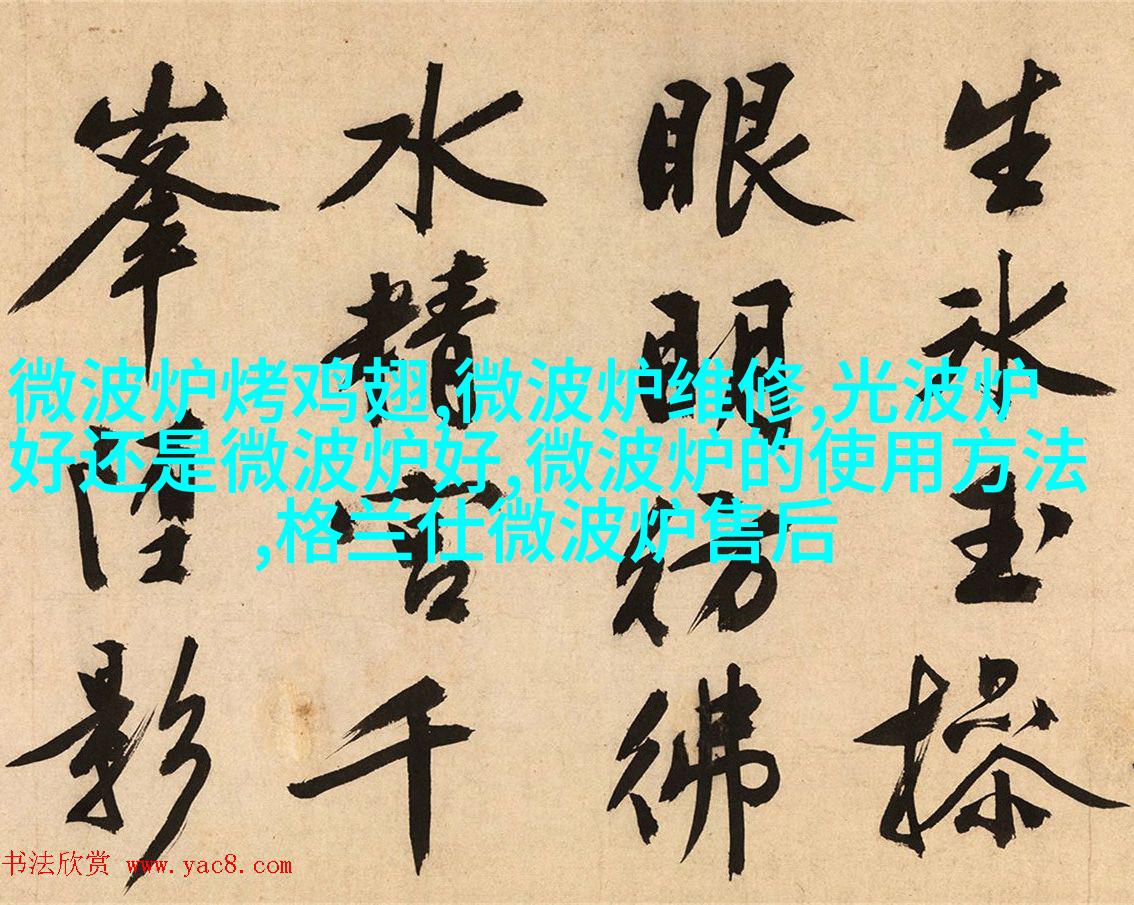 生冰玉操
眼明彷彿
水精宮千
峯影
微波炉烤鸡翅,微波炉维修,光波炉
好还是微波炉好,微波炉的使用方法
,格兰仕微波炉售后
书法欣赏 www.yac8.com